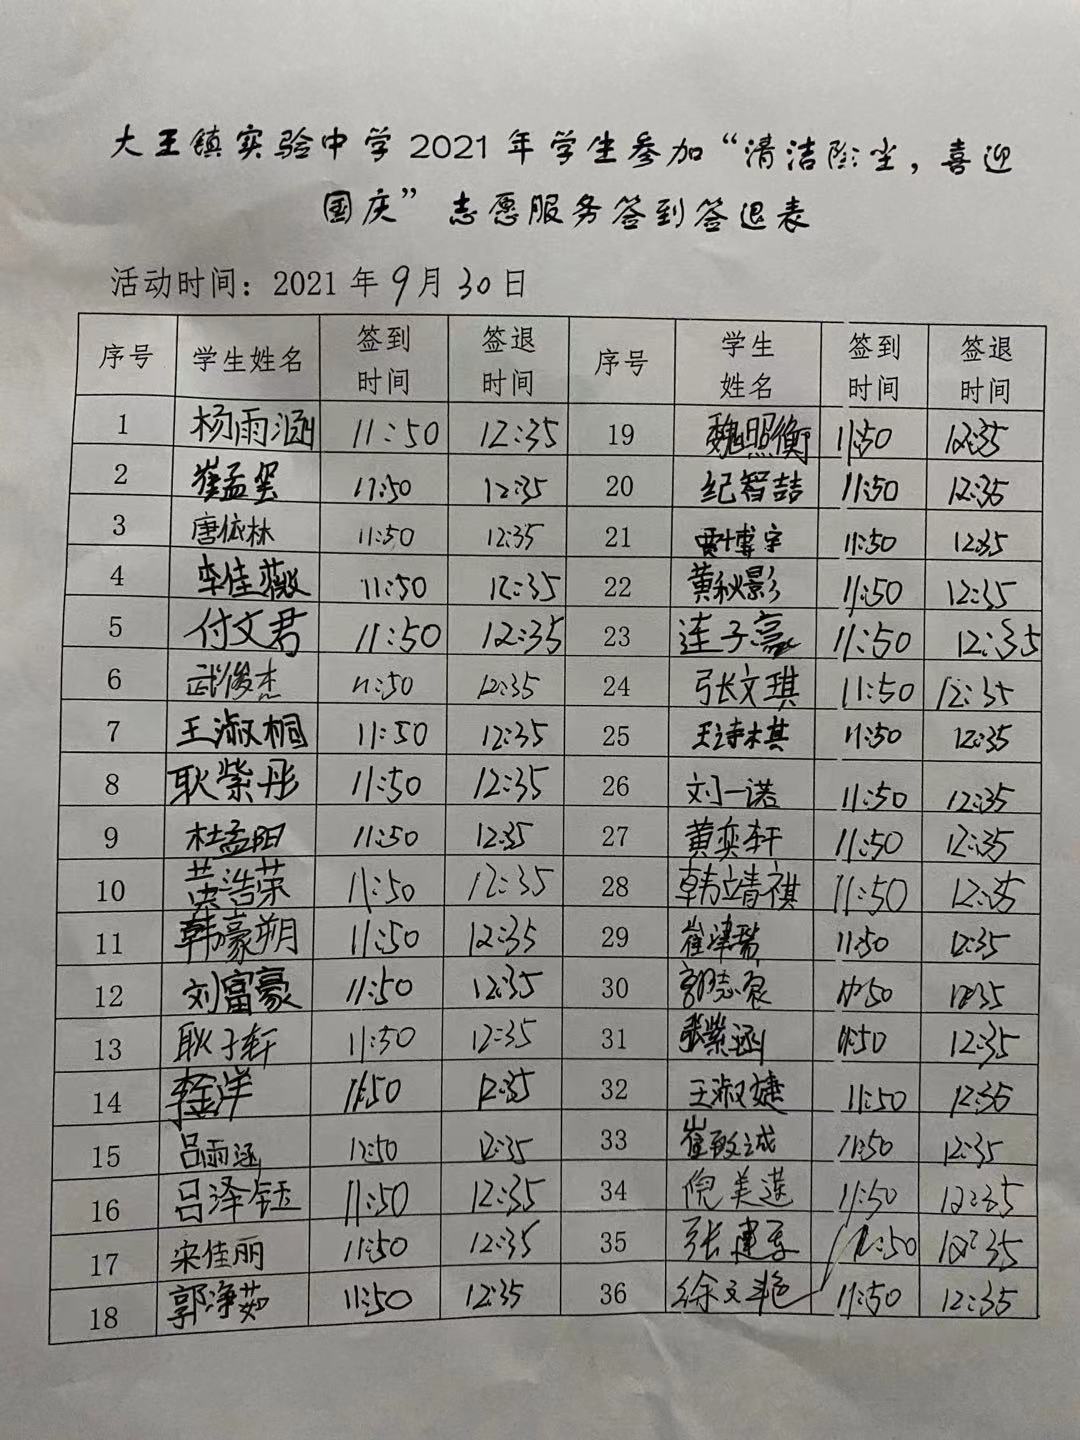 大王镇实验中学2021年学生参加“清洁除尘，喜迎
国庆”志愿服务签到签退表
活动时间：2021年9月30日
序号 学生姓名 签到时间 签退时间 序号 学生姓名 签到时间 签退时间
1 杨雨涵 11:50 12:35 19 魏照衡 11:50 12:35
2 崔孟玺 11:50 12:35 20 纪智喆 11:50 12:35
3 唐依林 11:50 12:35 21 博宇 11:50 12:35
4 李佳薇 11:50 12:35 22 黄秋影 11:50 12:35
5 付文君 11:50 12:35 23 连子豪 11:50 12:35
6 武俊杰 11:50 12:35 24 张文琪 11:50 12:35
7 王淑桐 11:50 12:35 25 王诗棋 11:50 12:35
8 耿紫彤 11:50 12:35 26 刘一诺 11:50 12:35
9 杜孟阳 11:50 12:35 27 黄奕轩 11:50 12:35
10 黄浩荣 11:50 12:35 28 韩靖祺 11:50 12:35
11 韩豪朔 11:50 12:35 29 崔津瑞 11:50 12:35
12 刘富豪 11:50 12:35 30 郭志 11:50 12:35
13 耿子轩 11:50 12:35 31 张紫涵 11:50 12:35
14 李金洋 11:50 12:35 32 王淑婕 11:50 12:36
15 吕雨涵 11:50 12:35 33 崔政诚 11:50 12:35
16 吕泽钰 11:50 12:35 34 倪美莲 11:50 12:35
17 宋佳丽 11:50 12:35 35 张建 11:50 12:35
18 郭净茹 11:50 12:35 36 徐文艳 11:50 12:35